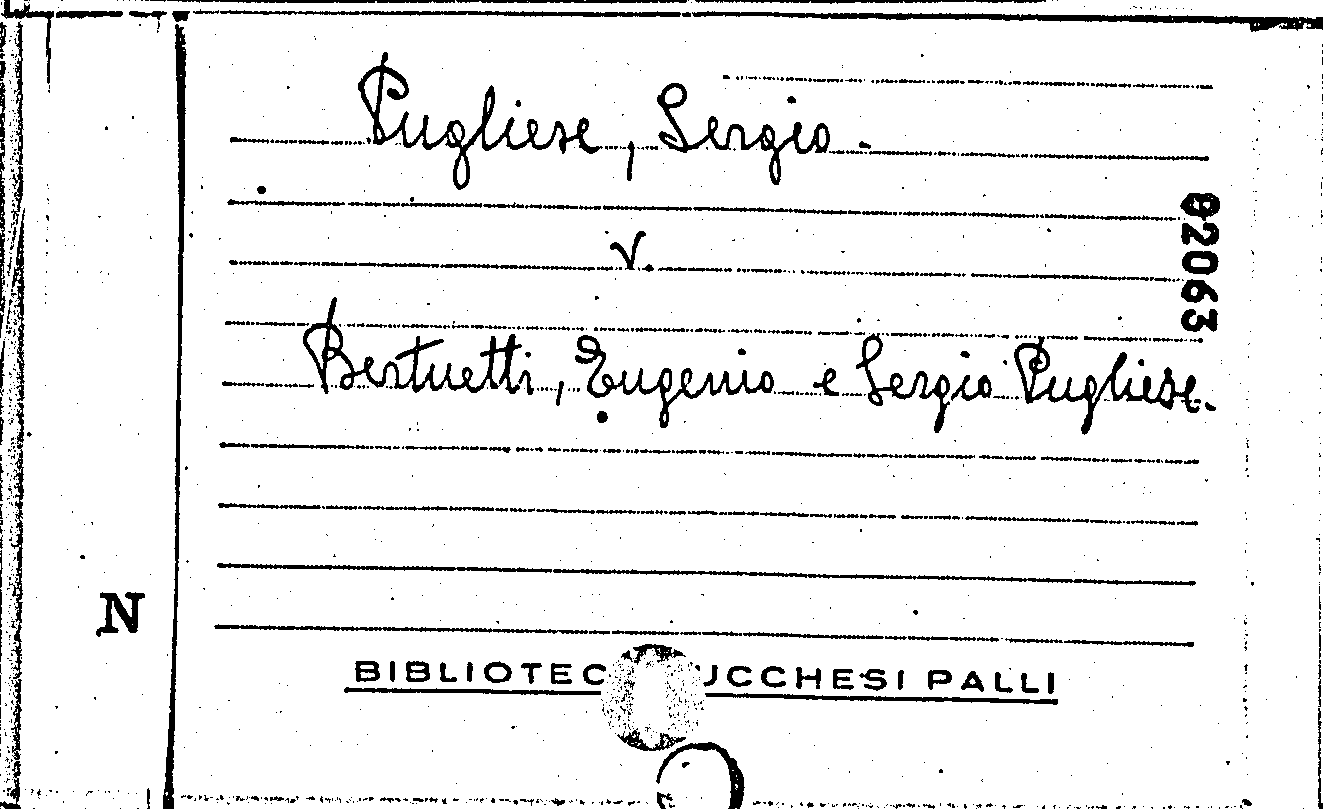 Pugliese, Sergio.
v.
Bertuetti, Eugenio e Sergio Pugliese.
82063
N
BIBLIOTEC UCCHESI PALLI